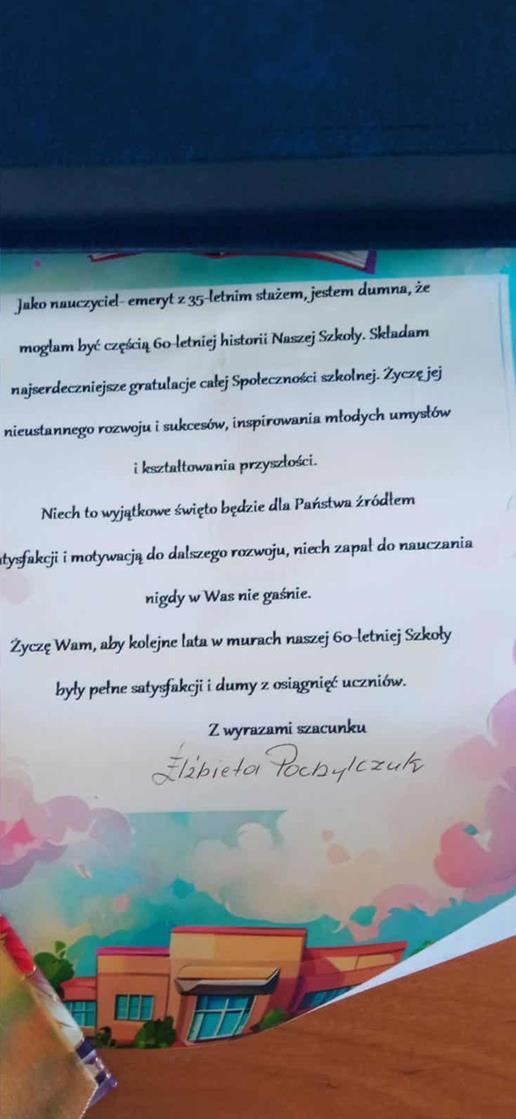 Jako nauczyciel- emeryt z 35-letnim stażem, jestem dumna, że
mogłam być częścią 60-letniej historii Naszej Szkoły. Składam
najserdeczniejsze gratulacje całej Społeczności szkolnej. Życzę jej
nieustannego rozwoju i sukcesów, inspirowania młodych umysłów
i kształtowania przyszłości.
Niech to wyjątkowe święto będzie dla Państwa źródłem
atysfakcji i motywacją do dalszego rozwoju, niech zapał do nauczania
nigdy w Was nie gaśnie.
Życzę Wam, aby kolejne lata w murach naszej 60-letniej Szkoły
były pełne satysfakcji i dumy z osiągnięć uczniów.
Z wyrazami szacunku
Elżbieta Pochylczuk